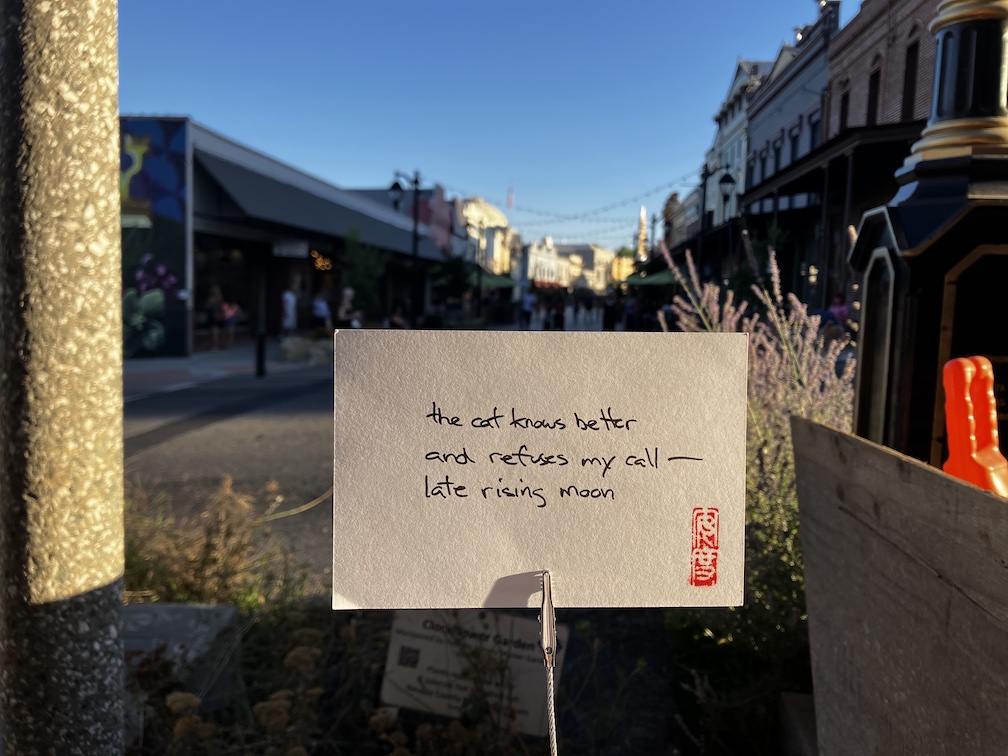 the cat knows better
and refuses my call —
late rising moon
Garden